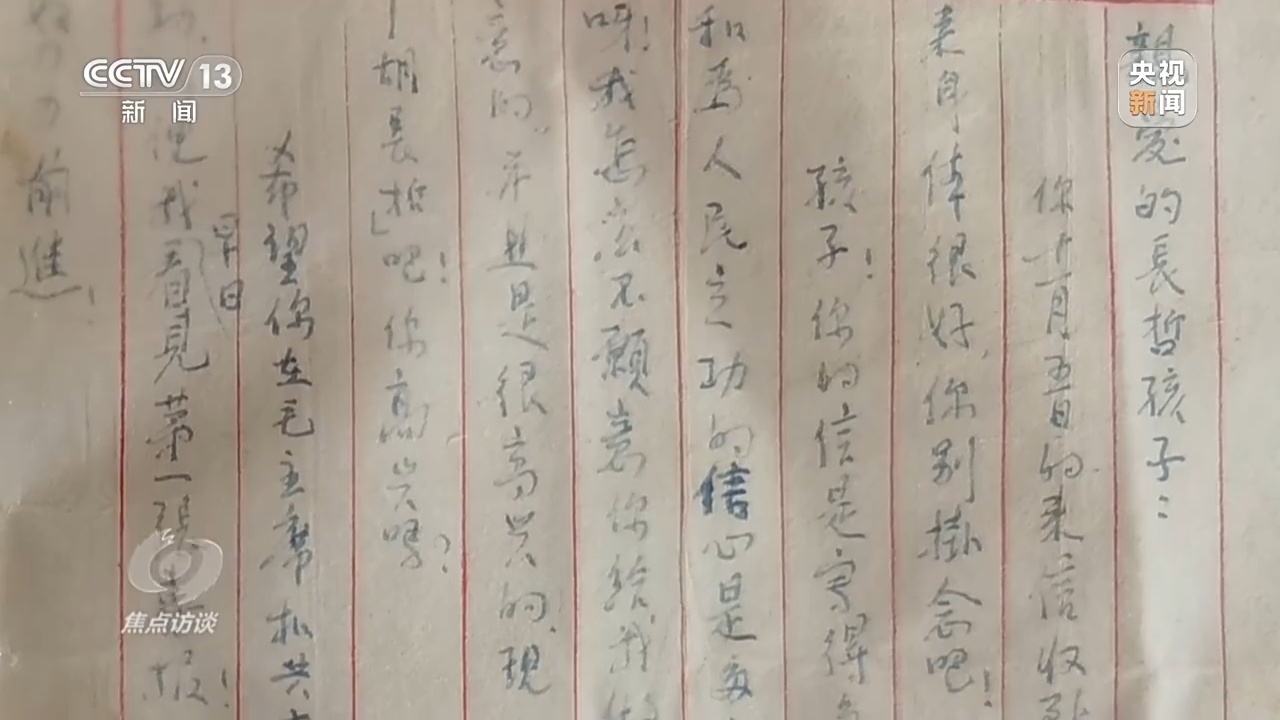 CCTV 13
新闻
央视
新闻
親爱的長哲孩子:
你十一月五日的来信收到
来身体很好,你别掛念吧!
孩子!你的信是写得
和为人民立功的信心是
呀!我怎麽不願意你给我
意的,并且是很高兴的,現
胡長哲」吧!你高兴吗?
希望你在毛主席和共
日
我看見第一張 报!
前進!
焦点访谈